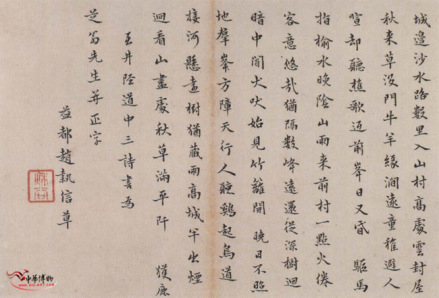 城边沙水路数里入山村高處雲封屋
秋来草没門牛羊緣澗遠童稚避人
喧却聽樵歌近前峯日又昏 驅馬
指榆水晚陰山雨来前村一點火倦
客意悠哉猶隔數峰遠還從深樹迴
暗中聞犬吠始見竹籬開 曉日不照
地羣峯方障天行人聽鷄起鳥道
接河懸畫樹猶藏雨高城半出煙
迴看山盡處秋草滿平阡 獲鹿
至井陉道中三詩書為
芝翁先生并正字
益都趙執信草
中華博物